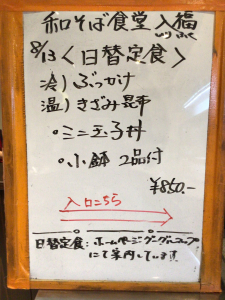 和そば食堂 入福
いり ふく
8/13 〈日替定食〉
冷) ぶっかけ
温) きざみ昆布
・ミニ玉子丼
・小鉢 2品付
¥850.-
入口こちら
日替定食:ホームページ・グーグルマップ
にて案内しています